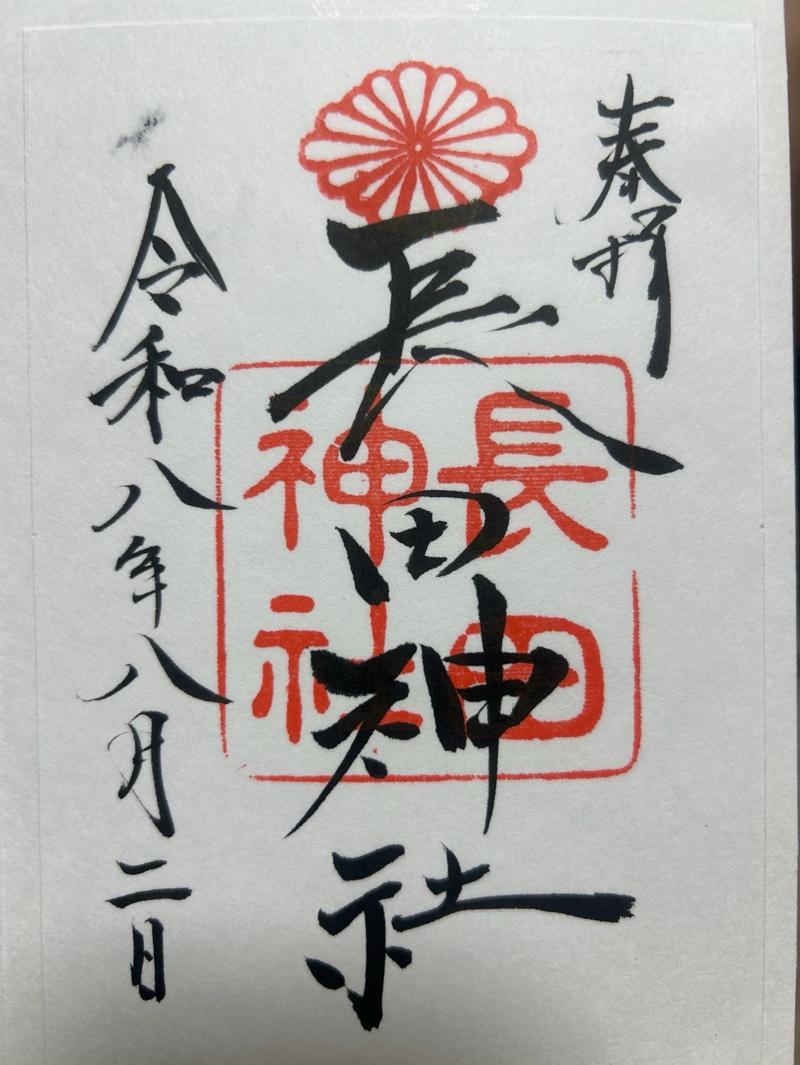 奉拝
長田神社
長田
神社
令和八年八月二日